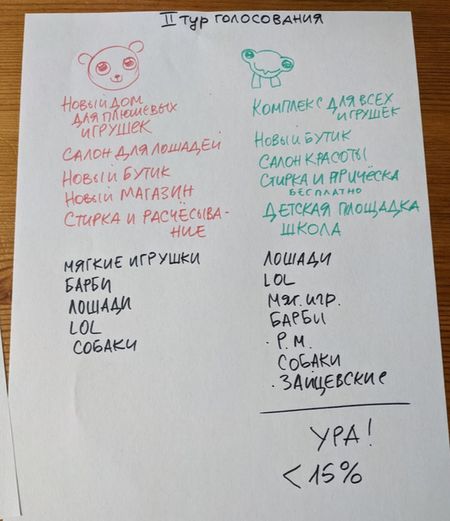 II ТУР ГОЛОСОВАНИЯ
НОВЫЙ ДОМ
ДЛЯ ПЛЮШЕВЫХ
ИГРУШЕК
САЛОН ДЛЯ ЛОШАДЕЙ
НОВЫЙ БУТИК
НОВЫЙ МАГАЗИН
СТИРКА И РАСЧЁСЫВА-
НИЕ
МЯГКИЕ ИГРУШКИ
БАРБИ
ЛОШАДИ
LOL
СОБАКИ
КОМПЛЕКС ДЛЯ ВСЕХ
ИГРУШЕК
НОВЫЙ БУТИК
САЛОН КРАСОТЫ
СТИРКА И ПРИЧЁСКА
БЕСПЛАТНО
ДЕТСКАЯ ПЛОЩАДКА
ШКОЛА
ЛОШАДИ
LOL
МЯГ. ИГР.
БАРБИ
· Р.М.
СОБАКИ
· ЗАЙЦЕВСКИЕ
УРА!
< 15%